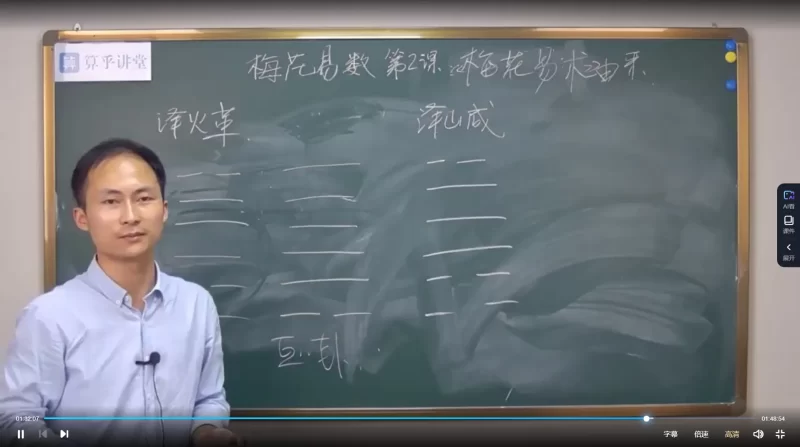 算乎讲堂
梅花易数 第2课:梅花易术由来
泽火革
泽山咸
互卦...
AI看
课件
展开
01:32:07
01:48:54
字幕 倍速 高清